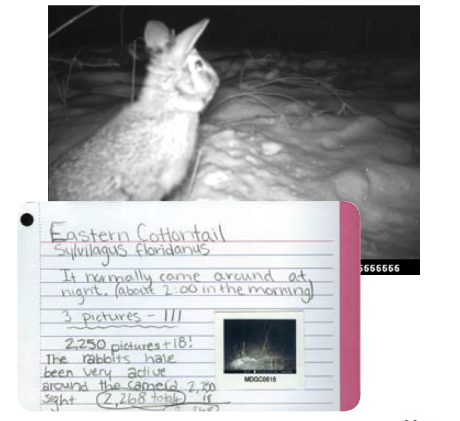 5666666
Eastern Cottontail
Sylvilagus floridanus
It normally came around at
night. (about 2:00 in the morning)
3 pictures - III
2,250 pictures + 18!
The rabbits have
been very active
around the camera 2,250
sight (2,268 total) 18
MDGC0515